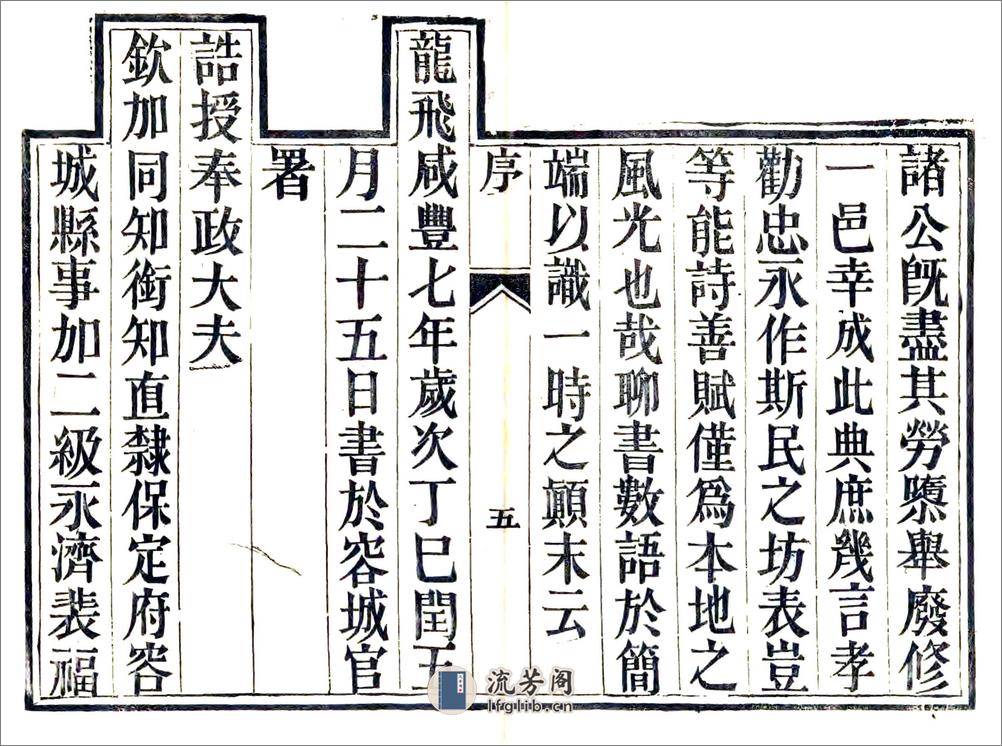 諸公旣盡其勞隳舉廢修
一邑幸成此典庶幾言孝
勸忠永作斯民之坊表豈
等能詩善賦僅爲本地之
風光也哉聊書數語於簡
端以識一時之顚末云
序
五
龍飛咸豐七年歲次丁巳閏五
月二十五日書於容城官
署
誥授奉政大夫
欽加同知銜知直隸保定府容
城縣事加二級永濟裴福
流芳阁
lfglib.cn